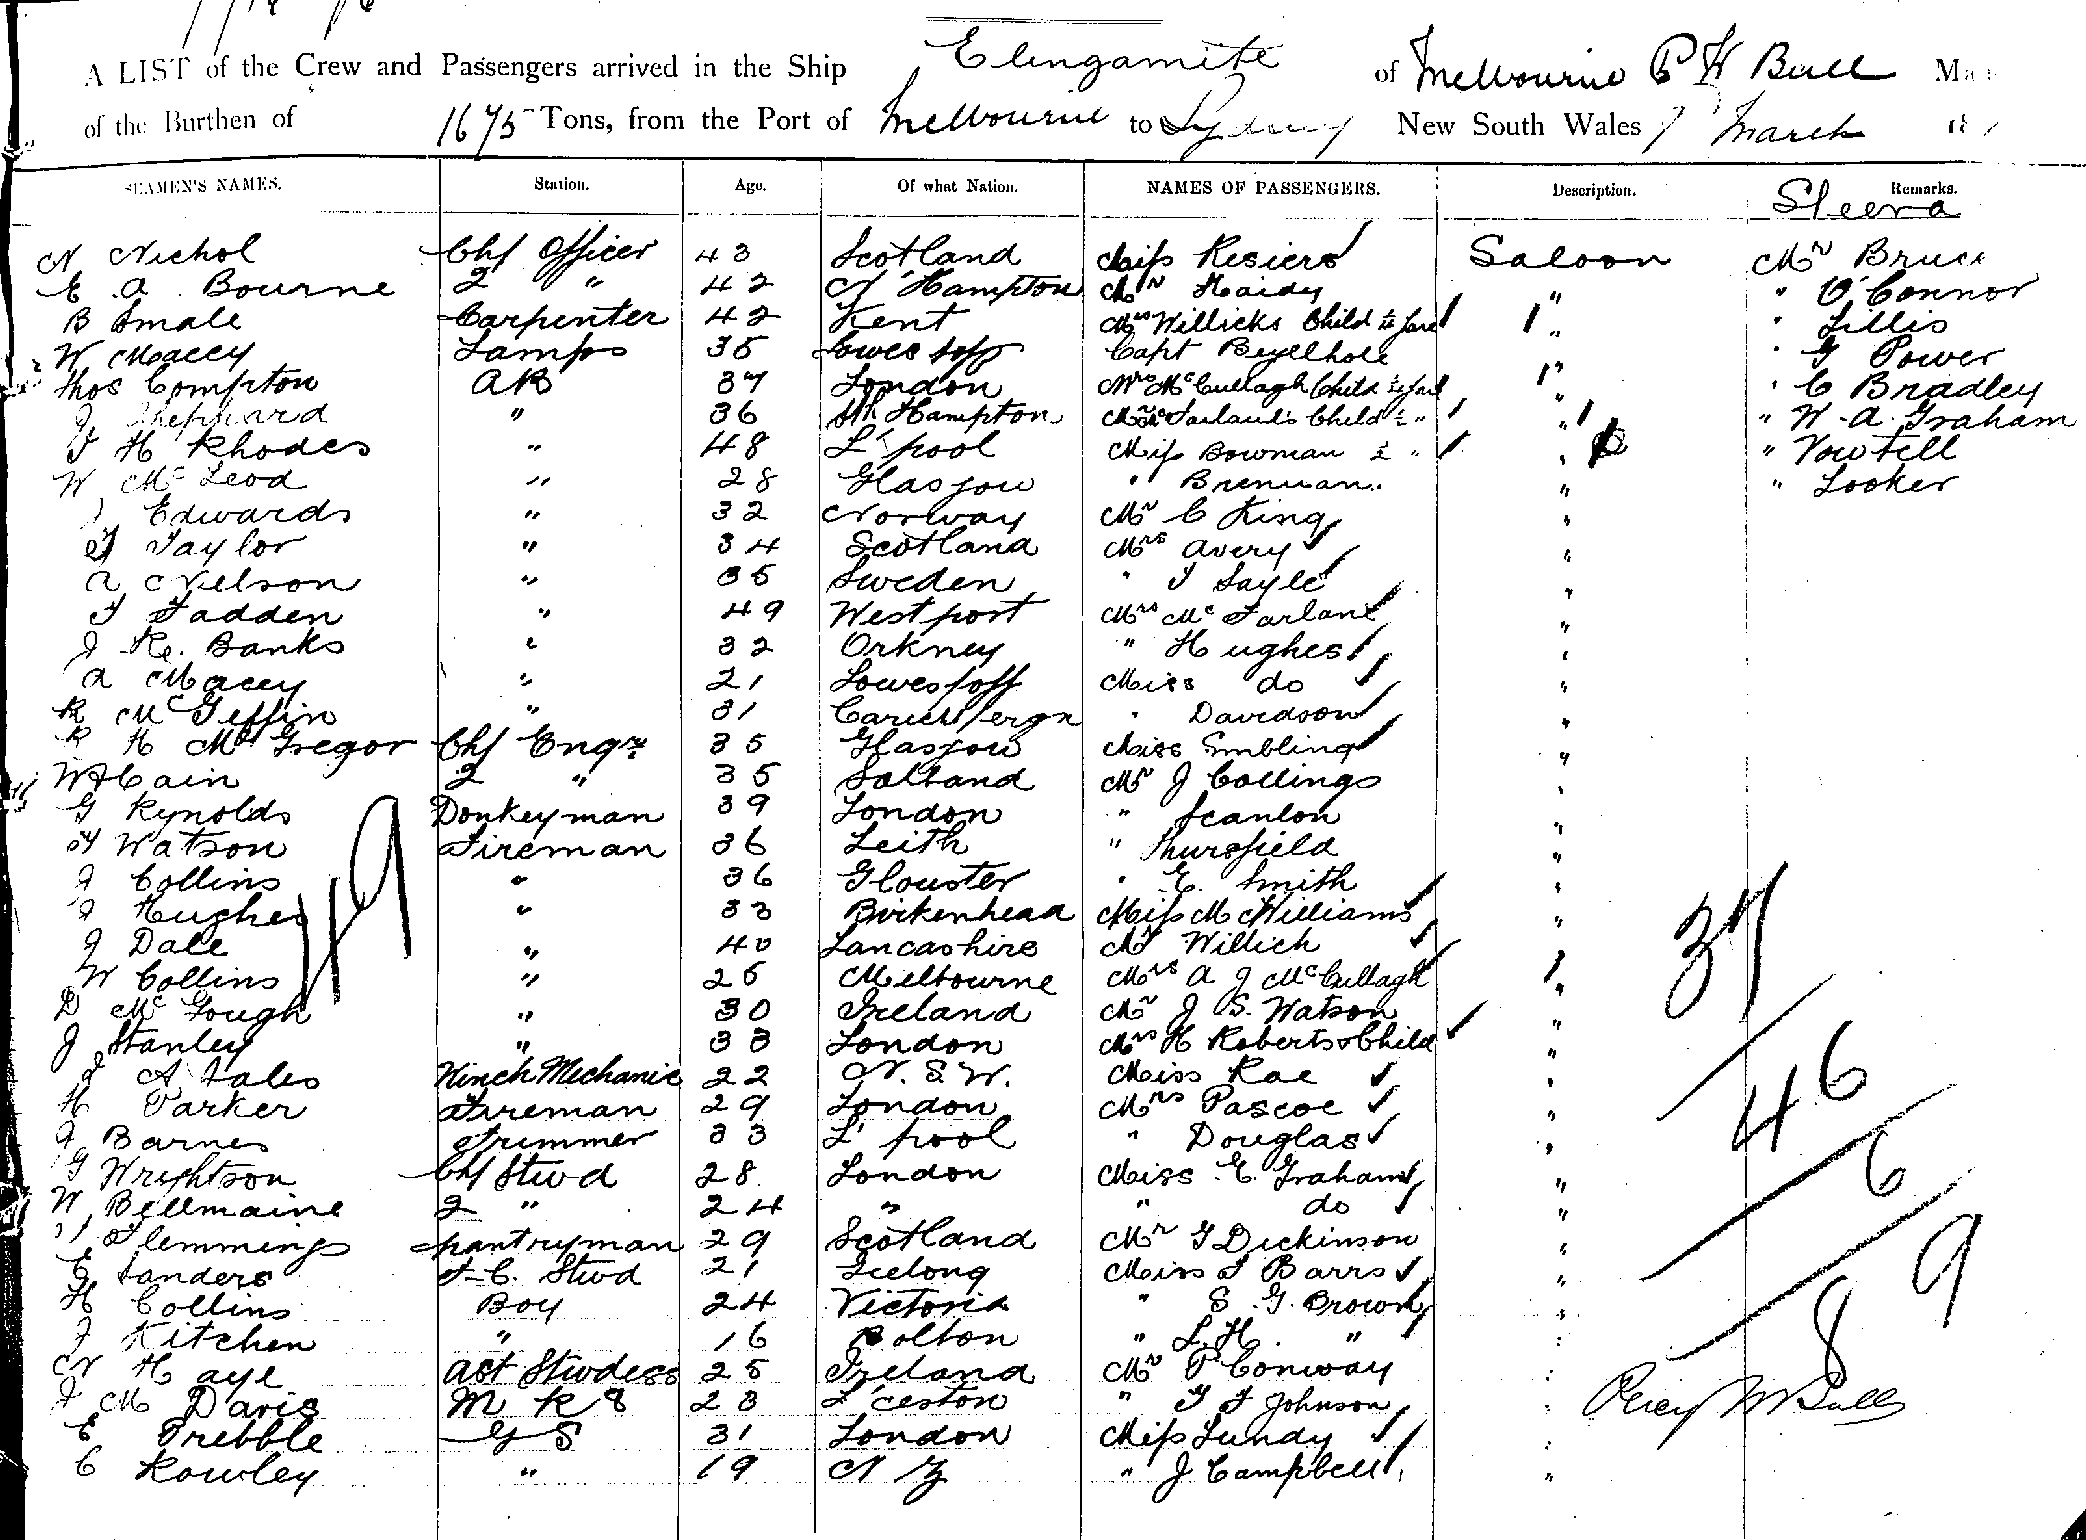 A LIST of the Crew and Passengers arrived in the Ship Elingamite of Melbourne P W Bull
of the Burthen of 1675 Tons, from the Port of Melbourne to Sydney New South Wales 7 March
SEAMEN'S NAMES. Station. Age. Of what Nation. NAMES OF PASSENGERS. Description. Remarks.
N Nichol Chf Officer 43 Scotland Miss Saloon Mr Bruce
E. A. Bourne 2 " 42 N' Hampton Mr Hardy " " O'Connor
B Smale Carpenter 42 Kent Mrs Willicks Child ½ fare 1 " " Lillis
W Macey Lamps 35 Lowestoff Capt " G Power
Thos Compton AB 37 London Mrs McCullagh Child ½ fare 1 " " C Bradley
J Sheppard " 36 Sth Hampton Child ½ " " 1 " W. A. Graham
H Rhodes " 48 L'pool Miss Bowman ½ " " " Vowtell
W McLeod " 28 Glasgow " Brennan " " Looker
Edwards " 32 Norway Mr C King "
Taylor " 34 Scotland Mrs Avery "
A Nelson " 35 Sweden " T Sayle "
T Fadden " 49 Westport Mrs McFarlane "
J R. Banks " 32 Orkney " Hughes "
A Macey " 21 Lowestoff Miss do "
R McGiffin " 31 " Davidson "
R H McGregor Chf Engr 35 Glasgow Miss Embling "
W H Cain 2 " 35 Mr J Collings "
G Rynolds Donkeyman 39 London " Scanlon "
H Watson Fireman 36 Leith " Thursfield "
J Collins " 36 Glouster " E. Smith "
J Hughes " 33 Birkenhead Miss McWilliams "
J Dale " 40 Lancashire Willich
W Collins " 25 Melbourne Mrs A J McCullagh 1 "
D McGough " 30 Ireland Mr J S. Watson "
J Stanley " 33 London Mrs H Roberts & Child "
A Fales Winch Mechanic 22 N. S. W. Miss Rae "
H Parker Fireman 29 London Mrs Pascoe "
J Barnes Trimmer 33 L'pool " Douglas "
G Wrightson Chf Stwd 28 London Miss E. Graham "
W Bellmaine 2 " 24 " " do "
Flemming Pantryman 29 Scotland Mr G Dickinson "
E Sanders F. C. Stwd 21 Geelong Miss F Barrs "
H Collins Boy 24 Victoria " S. G. Brown "
J Kitchen " 16 Bolton " L. H. " "
N Haye Act Stwdess 25 Ireland Mr P Conway "
J M Davis M R S 23 L'ceston " G F Johnson "
E Prebble G S 31 London Miss Lundy "
C Rowley " 19 N Z " J Campbell "
49
37
46
6
9
8